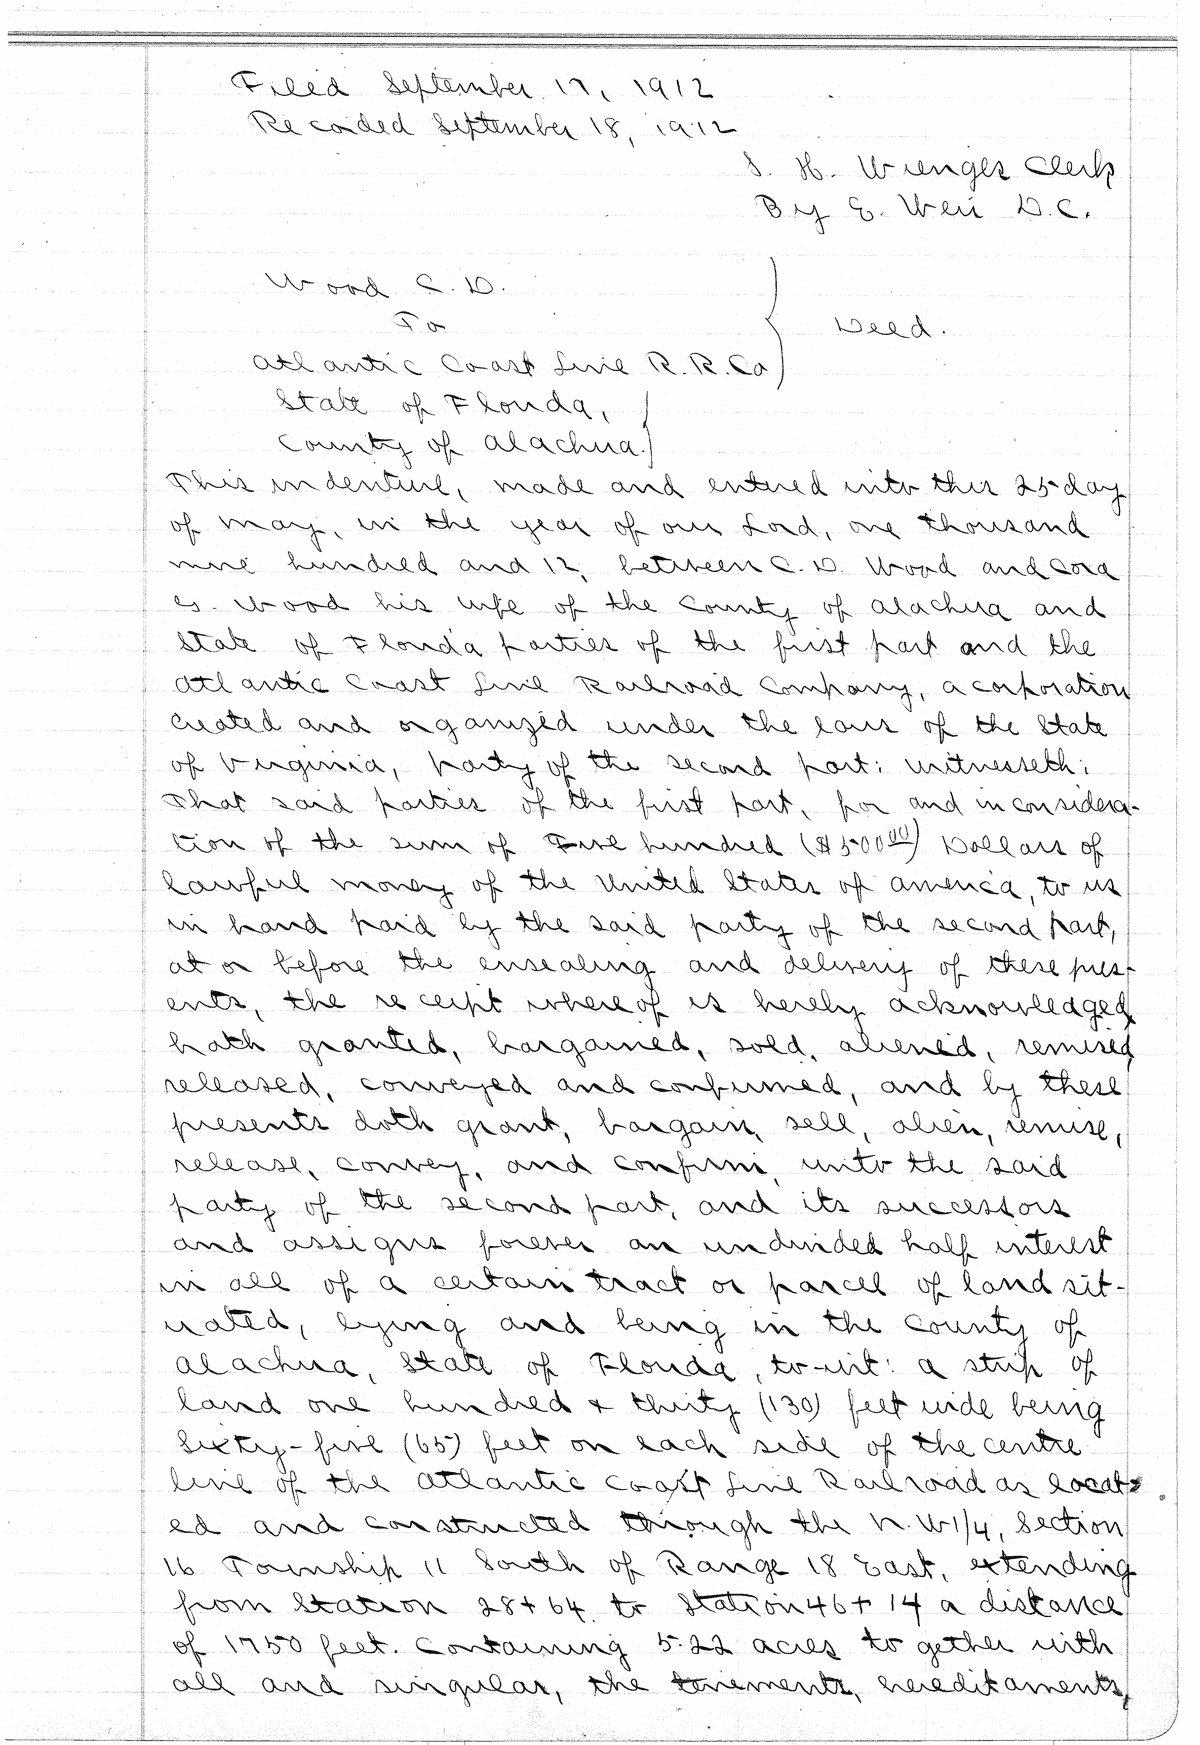 Filed September 17, 1912
Recorded September 18, 1912
S. H. Wienges Clerk
By E. Weii D.C.
Wood C. D.
To
Deed.
Atlantic Coast Line R. R. Co
State of Florida,
County of Alachua.
This indenture, made and entered into this 25 day
of May, in the year of our Lord, one thousand
nine hundred and 12, between C. D. Wood and Cora
G. Wood his wife of the County of Alachua and
State of Florida parties of the first part and the
Atlantic Coast Line Railroad Company, a corporation
created and organized under the laws of the State
of Virginia, party of the second part: witnesseth:
That said parties of the first part, for and in considera-
tion of the sum of Five hundred ($500.00) Dollars of
lawful money of the United States of America, to us
in hand paid by the said party of the second part,
at or before the ensealing and delivery of these pres-
ents, the receipt whereof is hereby acknowledged
hath granted, bargained, sold, aliened, remised
released, conveyed and confirmed, and by these
presents doth grant, bargain, sell, alien, remise,
release, convey, and confirm, unto the said
party of the second part, and its successors
and assigns forever an undivided half interest
in all of a certain tract or parcel of land sit-
uated, lying and being in the County of
Alachua, State of Florida, to-wit: a strip of
land one hundred & thirty (130) feet wide being
Sixty-five (65) feet on each side of the centre
line of the Atlantic Coast Line Railroad as locat-
ed and constructed through the N.W1/4, Section
16 Township 11 South of Range 18 East, extending
from Station 28+64 to Station 46+14 a distance
of 1750 feet. Containing 5.22 acres to gether with
all and singular, the tenements, hereditaments,